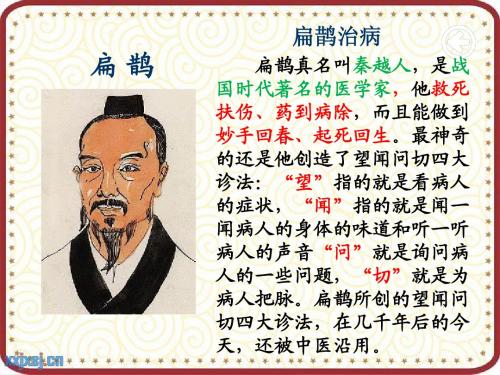 扁鹊治病
扁 鹊
扁鹊真名叫秦越人，是战
国时代著名的医学家，他救死
扶伤、药到病除，而且能做到
妙手回春、起死回生。最神奇
的还是他创造了望闻问切四大
诊法：“望”指的就是看病人
的症状，“闻”指的就是闻一
闻病人的身体的味道和听一听
病人的声音“问”就是询问病
人的一些问题，“切”就是为
病人把脉。扁鹊所创的望闻问
切四大诊法，在几千年后的今
天，还被中医沿用。